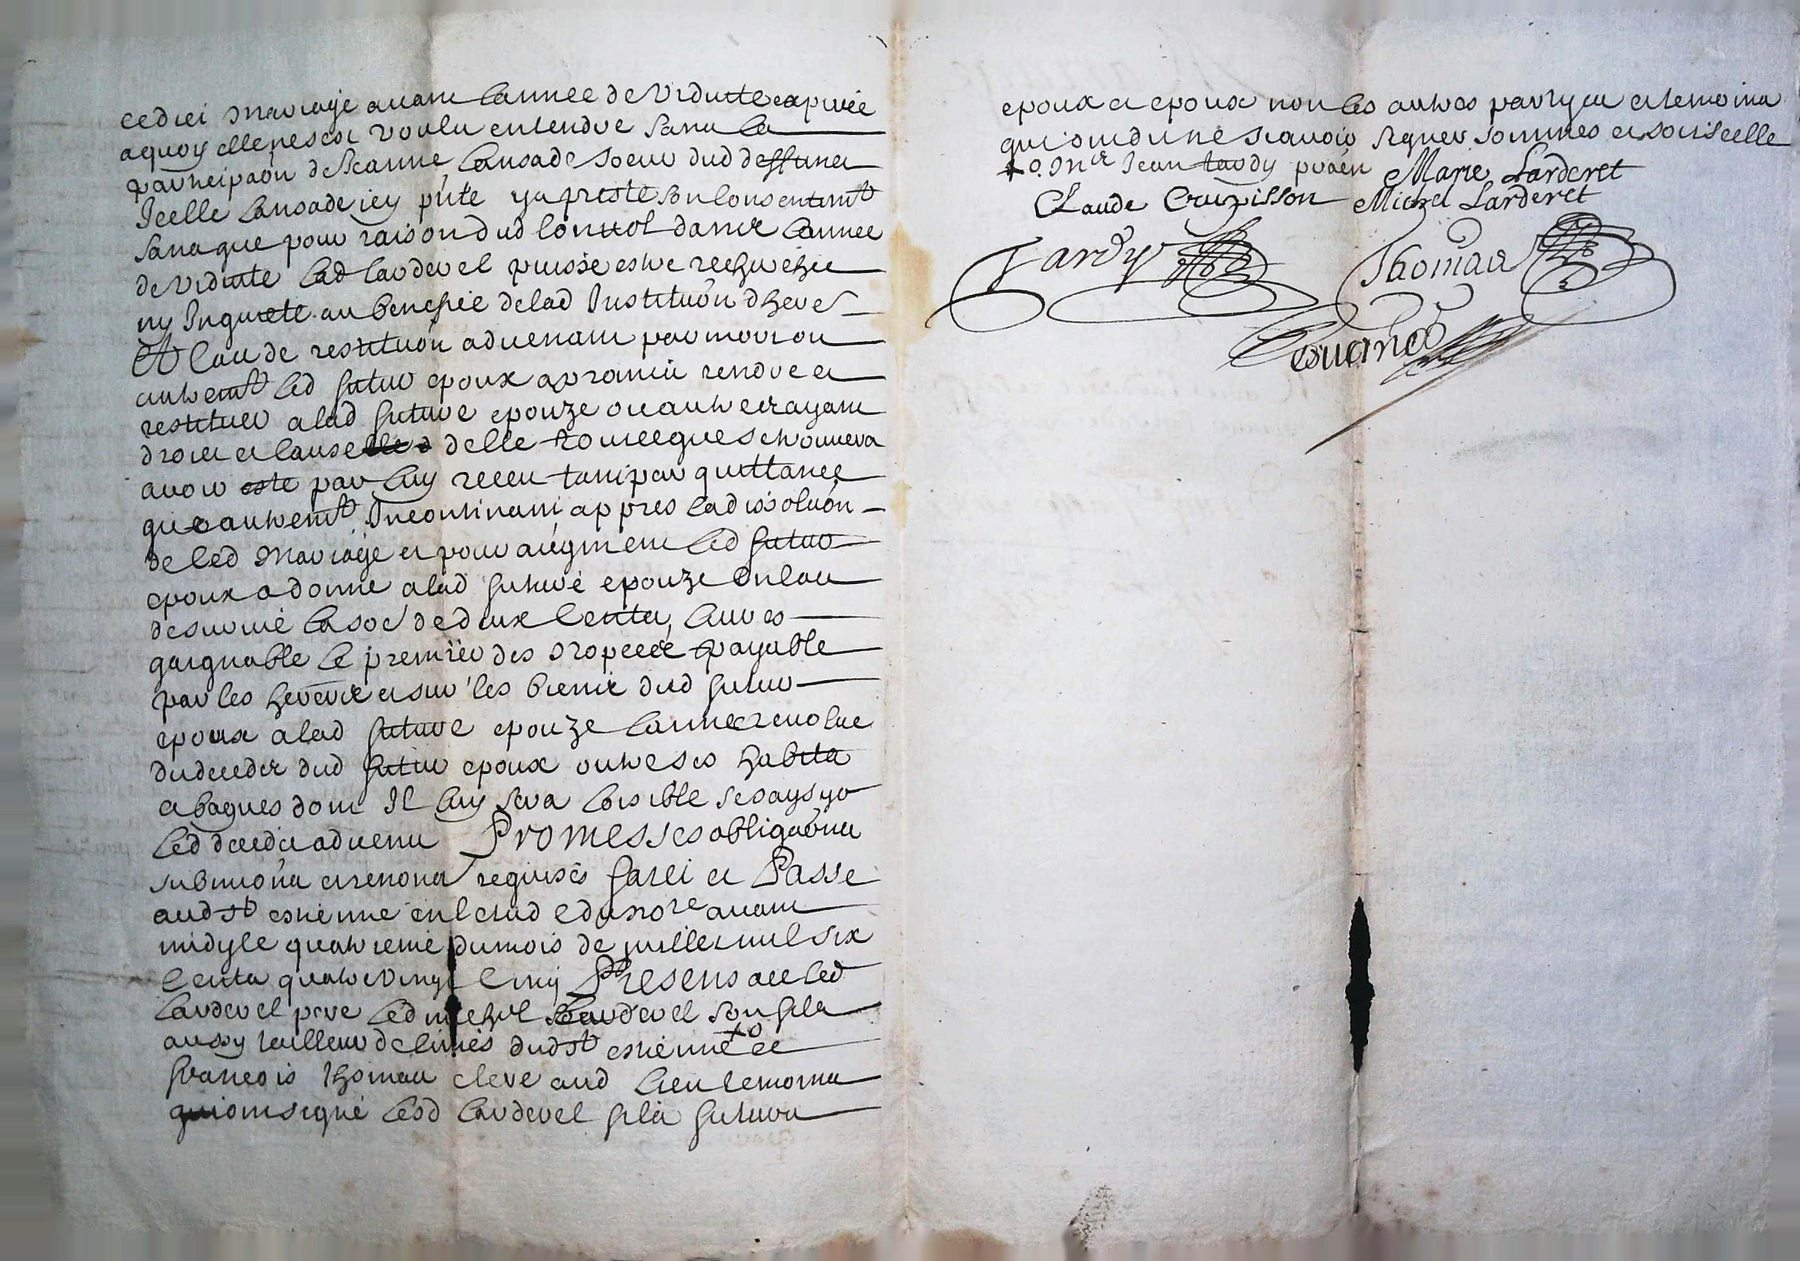 ced mariage avant lannee de viduitte expirée
a quoy elle nest voulu entendre sans la
participaon de Jeanne Lansade soeur dud deffunct
Icelle Lansade icy pnte y a presté son consentemt
sans que pour raison dud contrat dans lannee
de viduitte lad Larderet puisse estre recherchee
ny Inquiete au benefice de lad Instituon dheres
Et cas de restituon advenant par mort ou
autremt led futur epoux a promis rendre et
restituer a lad future epouze ou autre ayant
droict et cause delle tout ce que se trouvera
avoir este par luy receu tant par quittance
que autremt Incontinant appres la dissoluon
de led mariage et pour augment led futur
epoux a donné a lad future epouze En cas
de survie la soe de deux cents livres
gaignable le premier des decedé payable
par les heritie et sur les biens dud futur
epoux a lad future epouze lannee revolue
du deceder dud futur epoux outre ses habits
et bagues dont Il luy sera loisible se saysir
led decedé advenu Promesses obligaons
submions et renons requises faict et Passe
aud St estienne en lestude du nore avant
midy le quatrieme du mois de juillet mil six
cents quatre vingt cinq Presens avec led
Larderet pere led michel Larderet son fils
aussy tailleur de limes dud St estienne +o et
françois thomas clerc aud lieu temoins
qui ont signé lesd Larderet fils futurs
epoux et epouse non les autres partyes et temoins
qui ont dit ne scavoir signer sommes et sous scelle
+o Mr Jean tardy praen Marie Larderet
Claude Crupisson Michel Larderet
Tardy Thomas